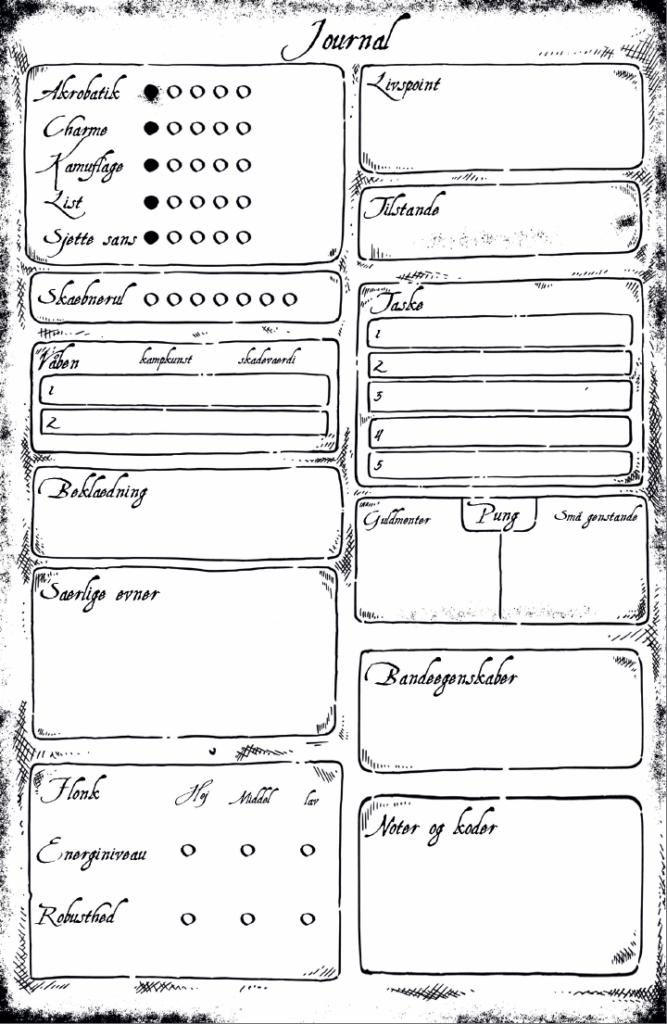 Journal
Akrobatik
Charme
Kamuflage
List
Sjette sans
Skæbnerul
Våben kampkunst skadeværdi
1
2
Beklædning
Særlige evner
Flonk Høj Middel lav
Energiniveau
Robusthed
Livspoint
Tilstande
Taske
1
2
3
4
5
Guldmønter Pung Små genstande
Bandeegenskaber
Noter og koder